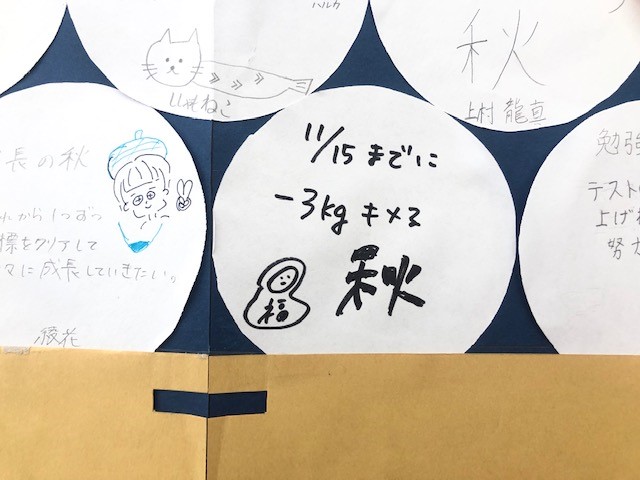 ハルカ
ししゃもねこ
秋
上村 龍直
成長の秋
から1つずつ
標をクリアして
々に成長していきたい。
綾花
11/15までに
-3kgキメる
秋
福
勉強
テスト
上げ
努力